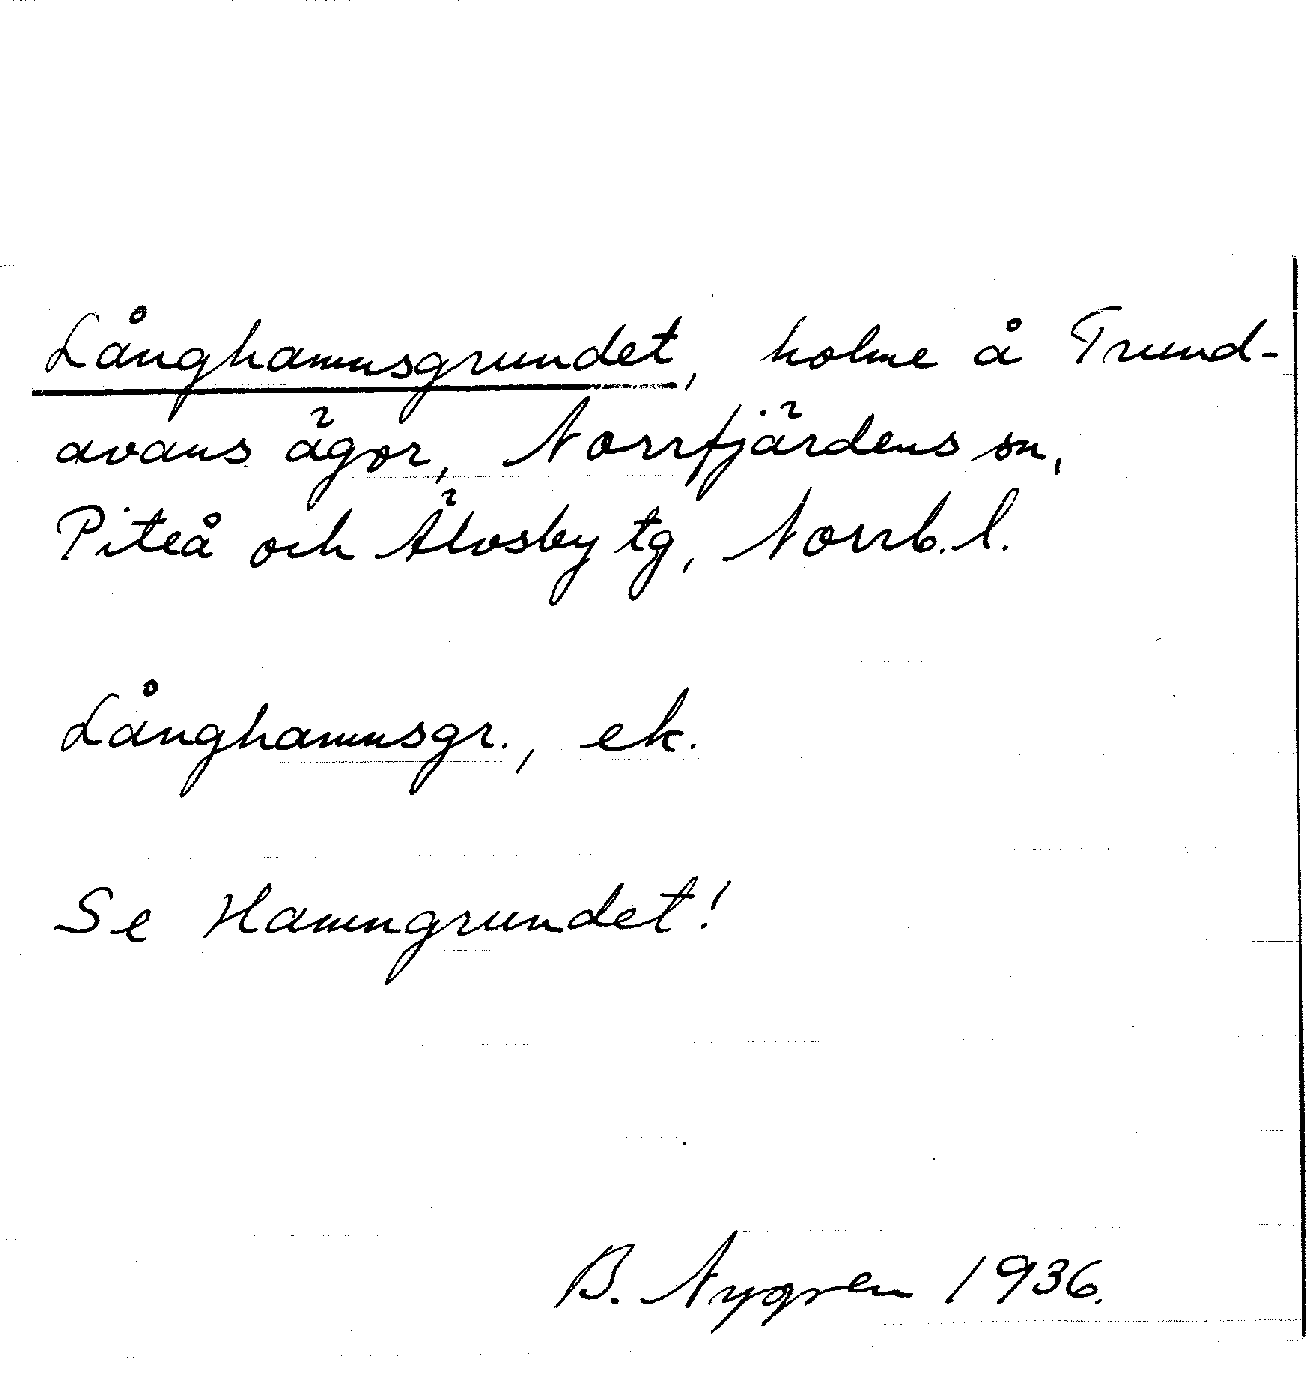 Långhamnsgrundet, holme å Trund-
avans ägor, Norrfjärdens sn,
Piteå och Älvsby tg, Norrb. l.
Långhamnsgr., ek.
Se Hamngrundet!
B. Nygren 1936.